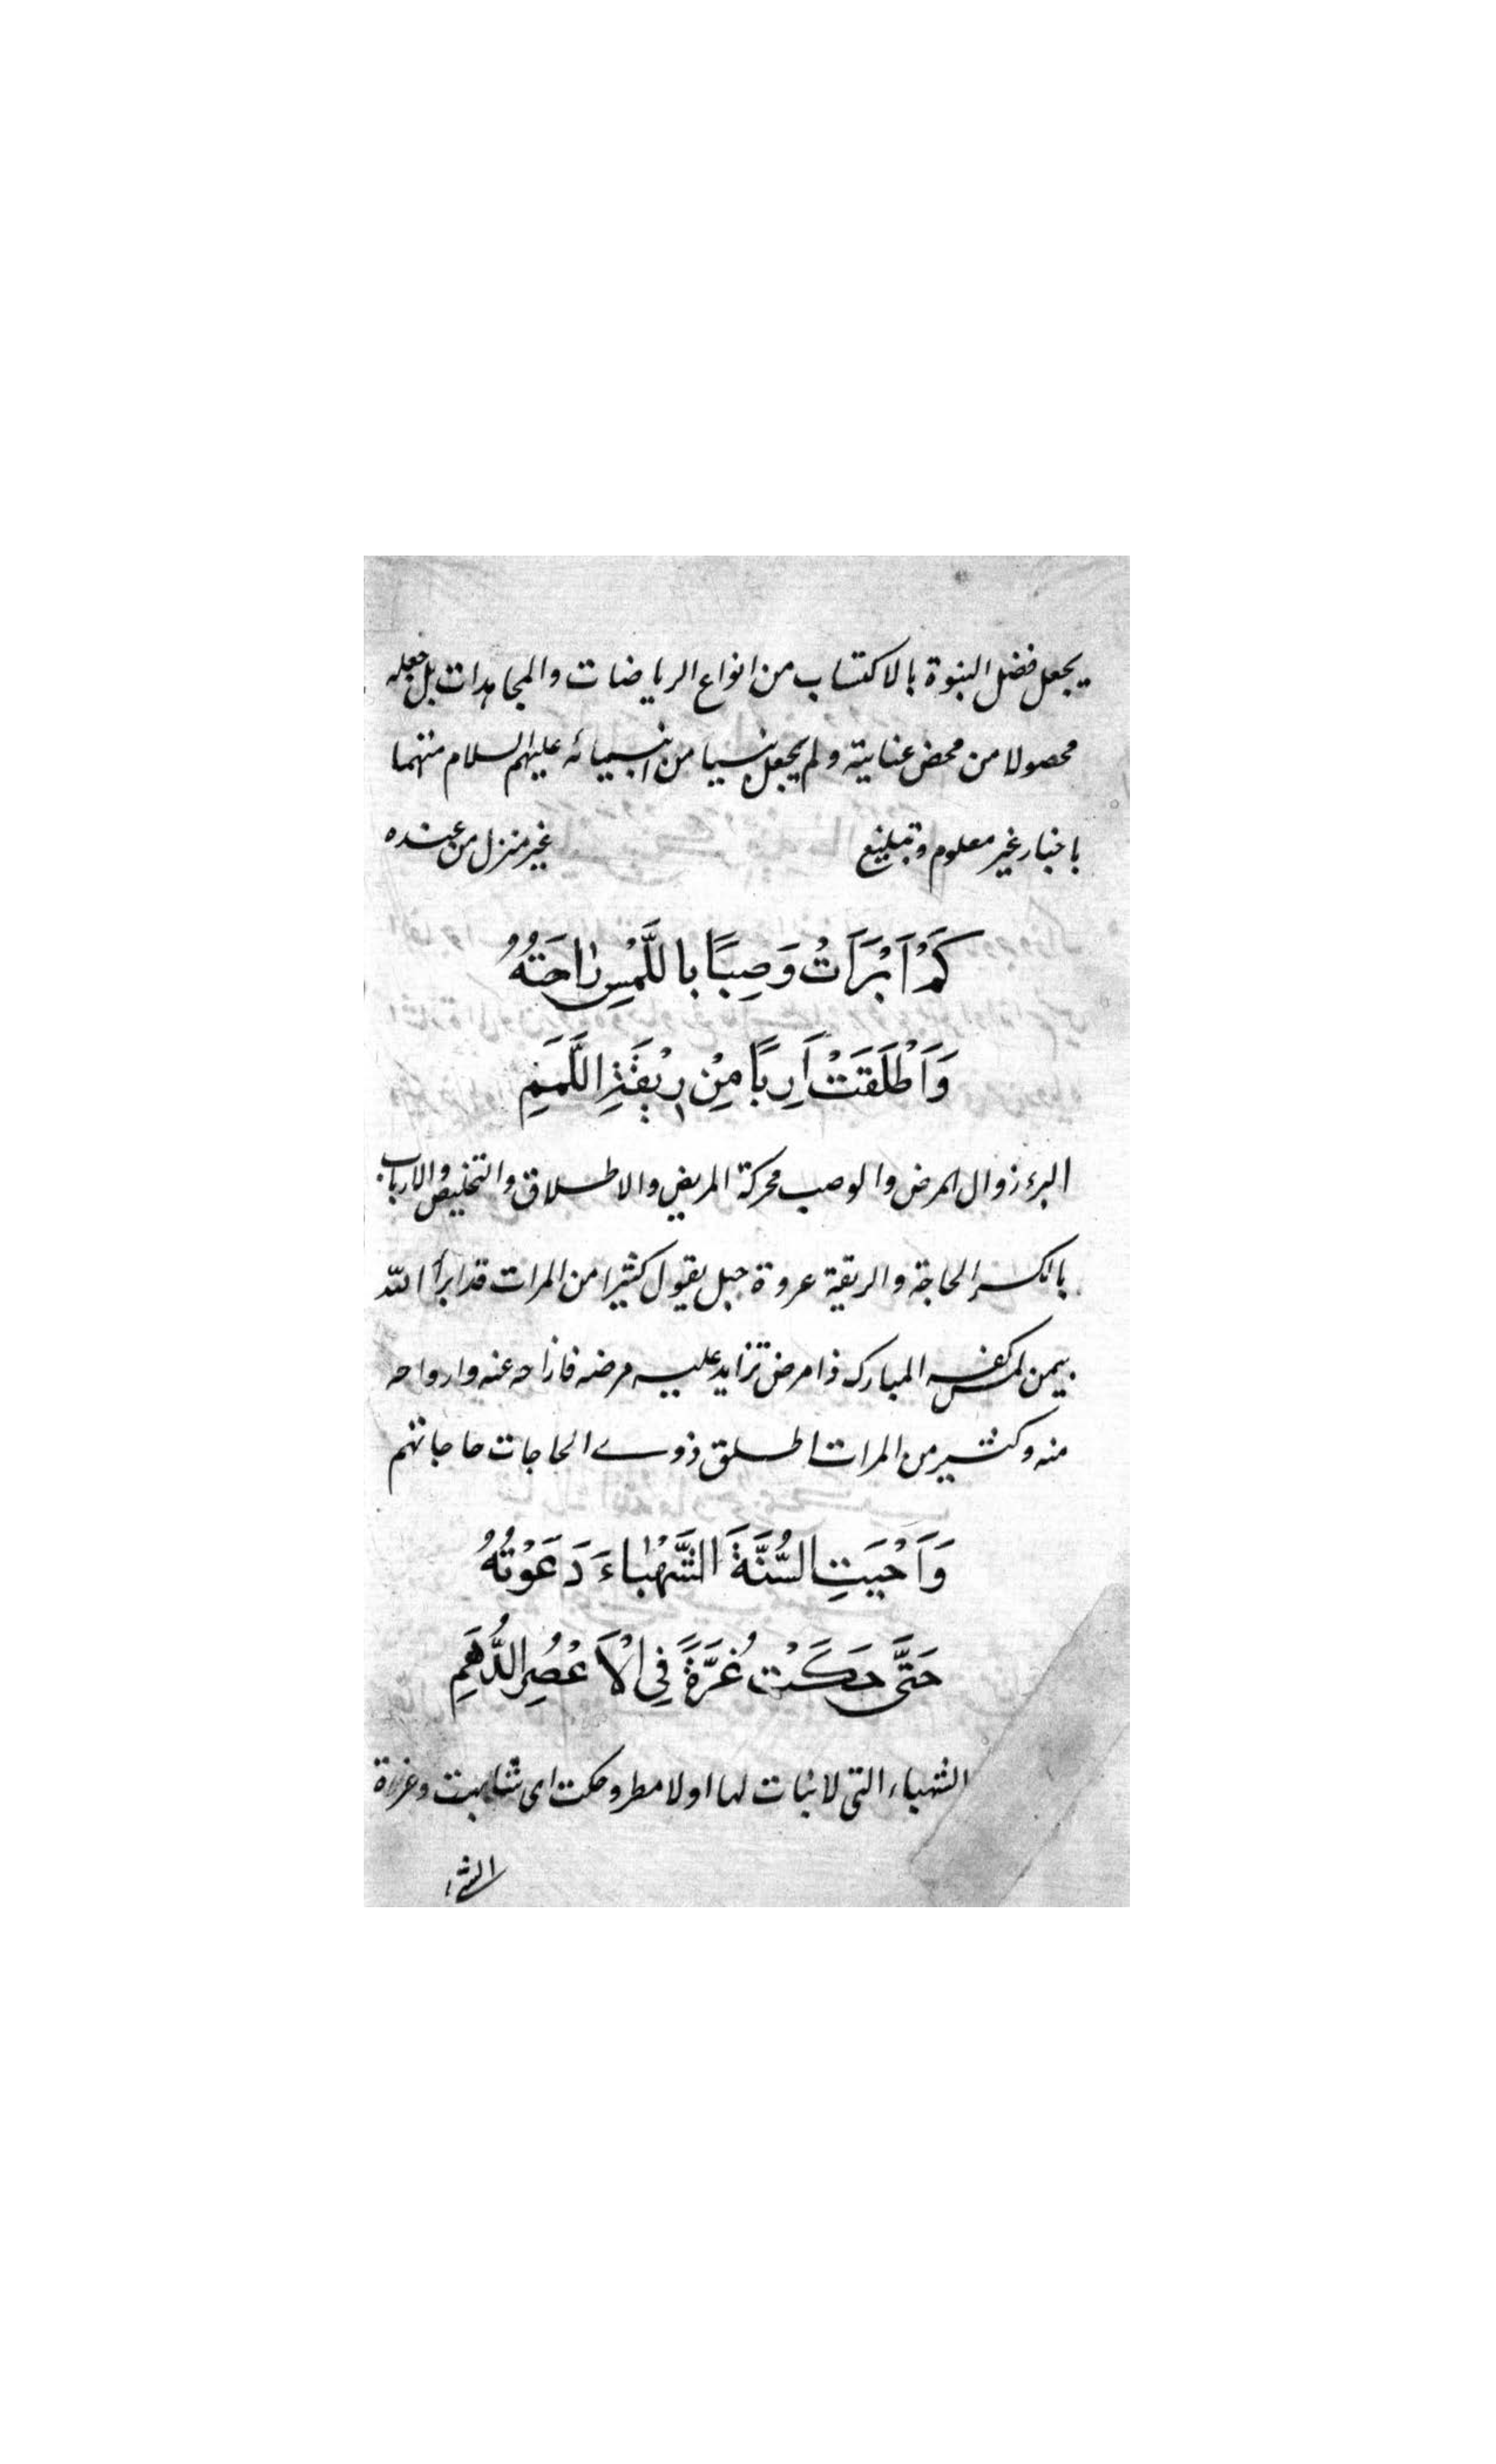 يجعل فضل النبوة بالاكتساب من انواع الرياضات والمجاهدات بل جعله
محصولا من محض عنايته ولم يجعل نبيا من انبيائه عليهم السلام متهما
باخبار غير معلوم وتبليغ غير منزل من عنده
كَمْ اَبْرَاَتْ وَصِبًا بِاللَّمْسِ رَاحَتُهُ
وَاَطْلَقَتْ اَرِبًا مِنْ رِبْقَةِ اللَّمَمِ
البرء زوال المرض والوصب محركة المريض والاطلاق والتخليص والارباب
بالكسر الحاجة والربقة عروة حبل يقول كثيرا من المرات قد ابرأ الله
بيمن لمس كفه المبارك ذا مرض تزايد عليه مرضه فازاحه عنه وارواحه
منه وكثير من المرات اطلق ذوے الحاجات حاجاتهم
وَاَحْيَتِ السُّنَّةَ الشَّهْبَاءَ دَعَوْتُهُ
حَتَّى حَكَتْ غُرَّةً فِي الْاَعْصُرِ الدُّهَمِ
الشهباء التى لا نبات لها او لا مطر وحكت اى شابهت وغرة